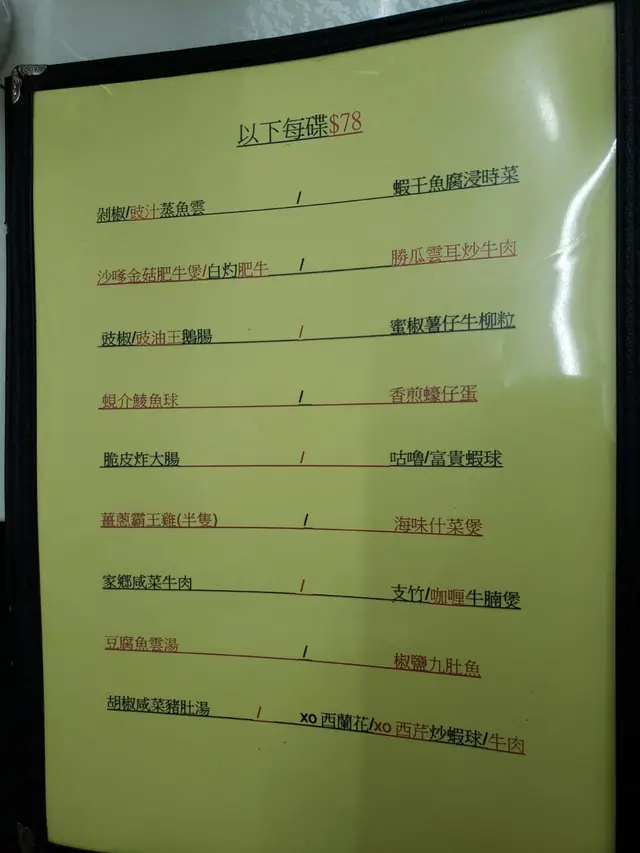 以下每碟$78
剁椒/豉汁蒸魚雲 / 蝦干魚腐浸時菜
沙嗲金菇肥牛煲/白灼肥牛 / 勝瓜雲耳炒牛肉
豉椒/豉油王鵝腸 / 蜜椒薯仔牛柳粒
蜆介鯪魚球 / 香煎蠔仔蛋
脆皮炸大腸 / 咕嚕/富貴蝦球
薑蔥霸王雞(半隻) / 海味什菜煲
家鄉咸菜牛肉 / 支竹/咖喱牛腩煲
豆腐魚雲湯 / 椒鹽九肚魚
胡椒咸菜豬肚湯 / xo 西蘭花/xo 西芹炒蝦球/牛肉